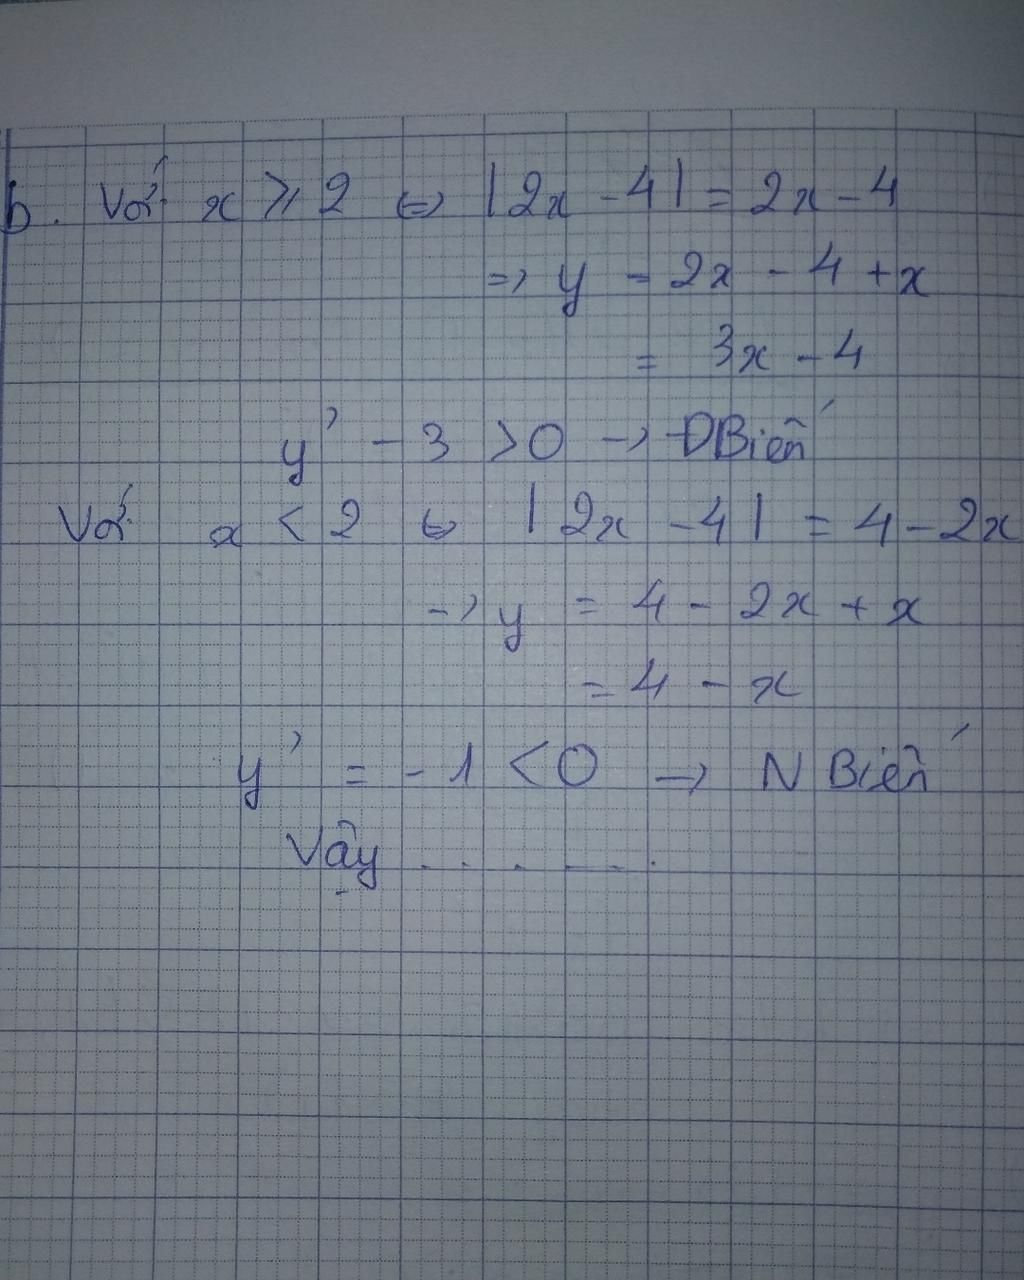 b. Với x ≥ 2 ⇔ |2x - 4| = 2x - 4
=> y = 2x - 4 + x
= 3x - 4
y' = 3 > 0 → ĐBiến
Với x < 2 ⇔ |2x - 4| = 4 - 2x
→ y = 4 - 2x + x
= 4 - x
y' = -1 < 0 → NBiến
Vậy .........